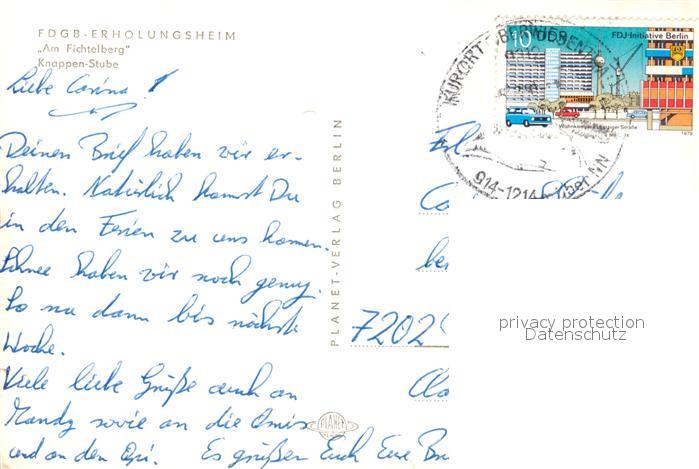 FDGB-ERHOLUNGSHEIM
„Am Fichtelberg"
Knappen-Stube
Liebe Corina!
Deinen Brief haben wir er-
halten. Natürlich kannst Du
in den Ferien zu uns kommen.
Schnee haben wir noch genug.
So na dann bis nächste
Woche.
Viele liebe Grüße auch an
Mandy sowie an die Omis
und an den Opi. Es grüßen Euch Eure
PLANET-VERLAG BERLIN
PLANET
10 DDR
FDJ-Initiative Berlin
1979
KURORT OBERWIESENTHAL
914-1214 über NN
be
7202
privacy protection
Datenschutz